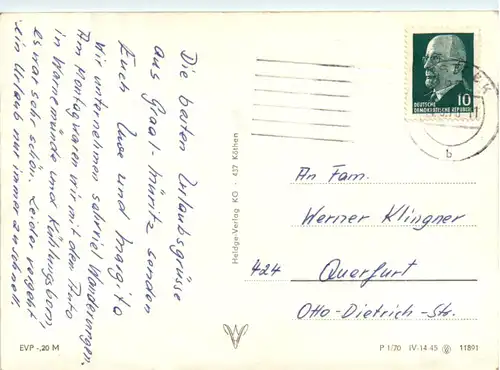 Die besten Urlaubsgrüsse
aus Graal-Müritz senden
Euch Uwe und Margitta
Wir unternehmen sehr viel Wanderungen.
Am Montag waren wir mit dem Auto
in Warnemünde und Kühlungsborn,
es war sehr schön. Leider vergeht
ein Urlaub nur immer zu schnell.
EVP -,20 M
Heldge-Verlag KG · 437 Köthen
10
DEUTSCHE
DEMOKRATISCHE REPUBLIK
b
An Fam.
Werner Klingner
424 Querfurt
Otto-Dietrich-Str.
P 1/70 IV-14-45 11891